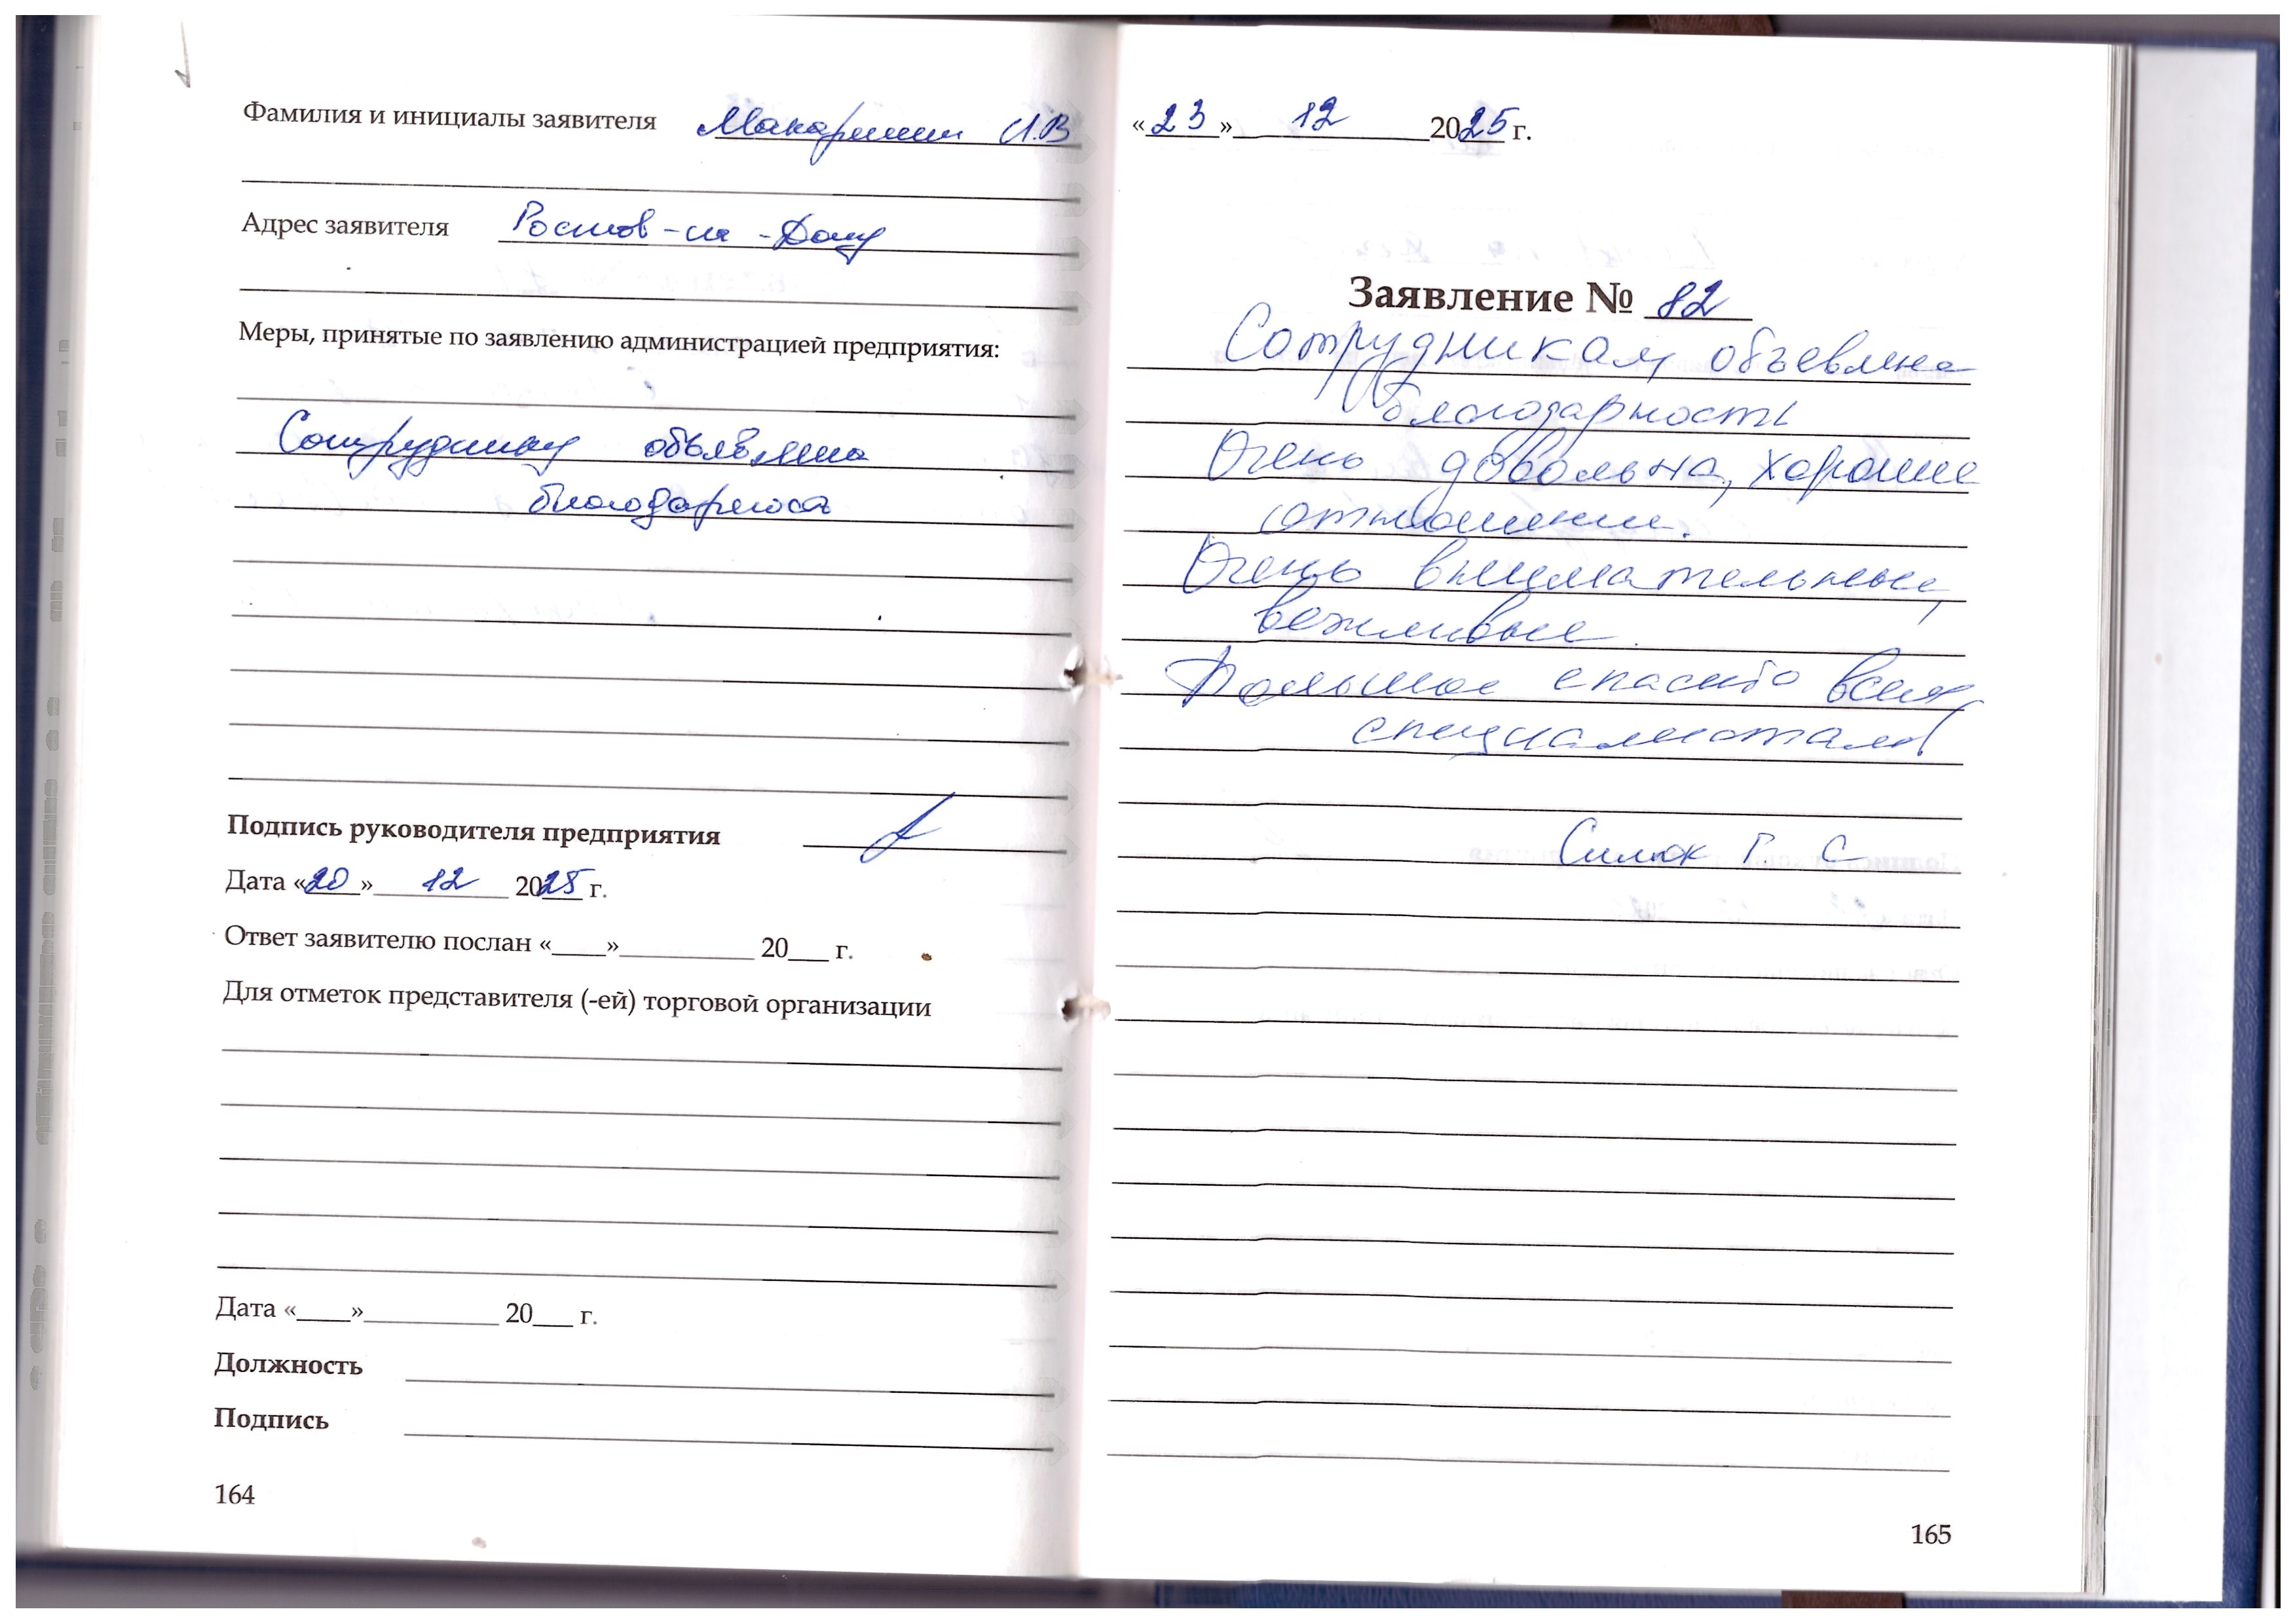 Фамилия и инициалы заявителя И.В
Адрес заявителя Ростов-на-Дону
Меры, принятые по заявлению администрацией предприятия:
Сотруднику объявлена
благодарность
Подпись руководителя предприятия
Дата «20» 12 2025 г.
Ответ заявителю послан «____»__________ 20___ г.
Для отметок представителя (-ей) торговой организации
Дата «____»__________ 20___ г.
Должность
Подпись
164
«23» 12 2025 г.
Заявление № 82
Сотрудникам объевлена
благодарность
Очень довольна, хорошие
отношения.
Очень внимательные,
вежливые.
Большое спасибо всем
специалистам
Силюк Г. С
165